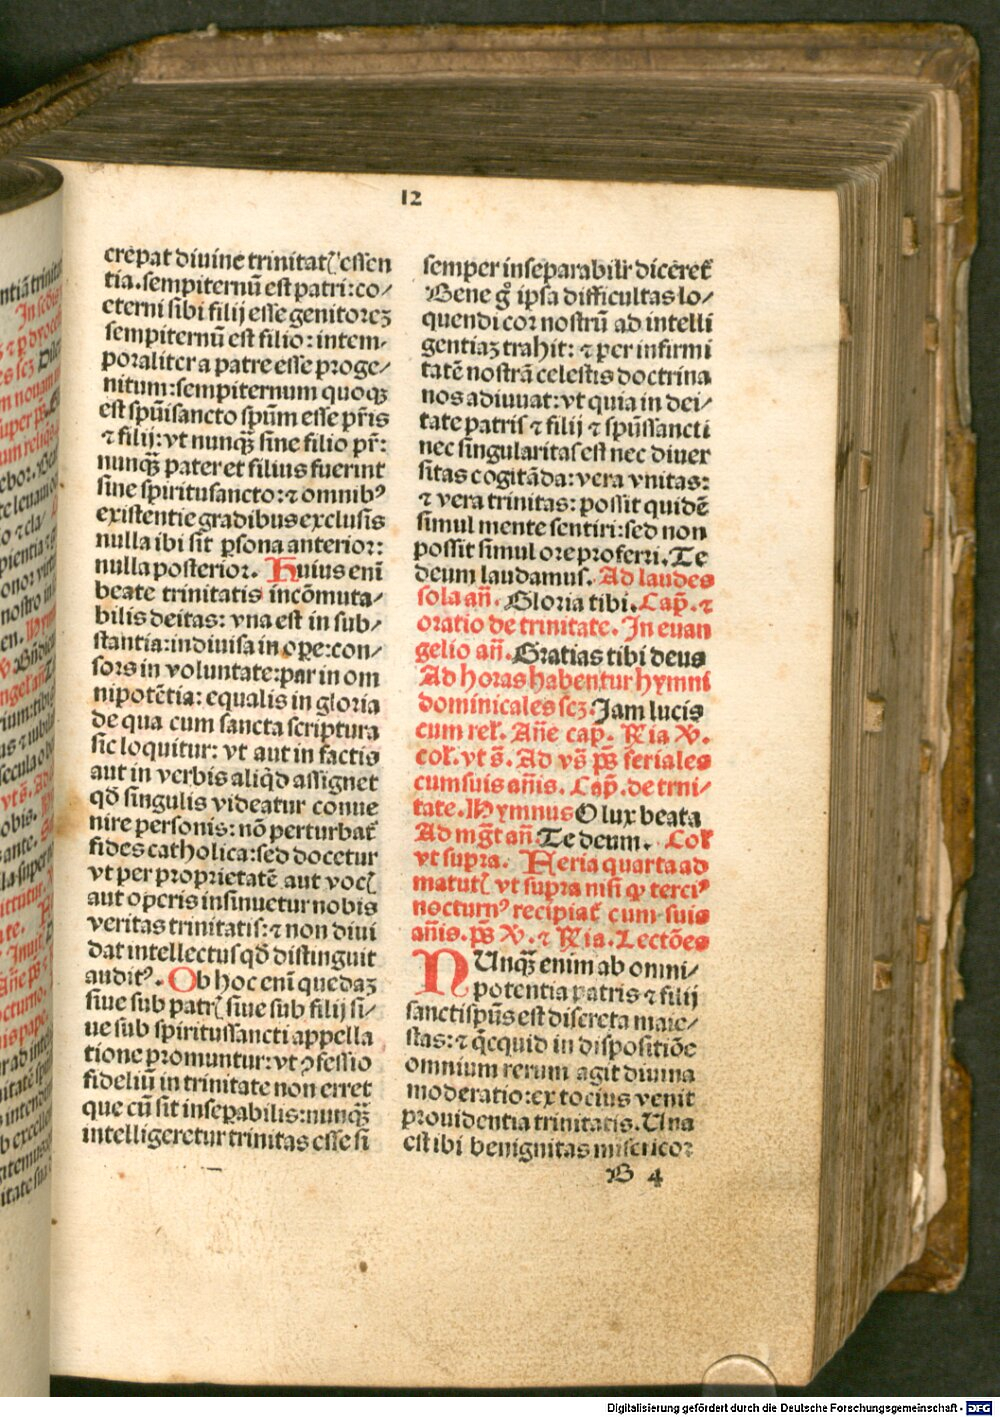 12
crepat diuine trinitatꝭ essen
tia. sempiternū est patri: co⸗
eterni sibi filij esse genitoreꝫ
sempiternū est filio: intem⸗
poraliter a patre esse proge⸗
nitum: sempiternum quoqꝫ
est spūisancto spūm esse pr̄is
⁊ filij: vt nunqꝫ sine filio pr̄:
nunqꝫ pater et filius fuerint
sine spiritusancto: ⁊ omnibꝰ
existentie gradibus exclusis
nulla ibi sit ꝑsona anterior:
nulla posterior. Huius enī
beate trinitatis incōmuta⸗
bilis deitas: vna est in sub⸗
stantia: indiuisa in oꝑe: con⸗
sors in voluntate: par in om
nipotētia: equalis in gloria
de qua cum sancta scriptura
sic loquitur: vt aut in factis
aut in verbis aliqd̄ assignet
qd̄ singulis videatur conue
nire personis: nō perturbat̄
fides catholica: sed docetur
vt per proprietatē aut vocꝭ
aut operis insinuetur nobis
veritas trinitatis: ⁊ non diui
dat intellectus qd̄ distinguit
auditꝰ. Ob hoc enī quedaꝫ
siue sub patrꝭ siue sub filij si⸗
ue sub spiritussancti appella
tione promuntur: vt ꝯfessio
fideliū in trinitate non erret
que cū sit inseꝑabilis: nunqꝫ
intelligeretur trinitas esse si
semper inseparabilr̄ diceret̄
Bene gͦ ipsa difficultas lo⸗
quendi cor nostrū ad intelli
gentiaꝫ trahit: ⁊ per infirmi
tatē nostrā celestis doctrina
nos adiuuat: vt quia in dei⸗
tate patris ⁊ filij ⁊ spūssancti
nec singularitas est nec diuer
sitas cogitāda: vera vnitas:
⁊ vera trinitas: possit quidē
simul mente sentiri: sed non
possit simul ore proferri. Te
deum laudamus. Ad laudes
sola an̄. Gloria tibi. Cap̄. ⁊
oratio de trinitate. In euan
gelio an̄. Gratias tibi deus
Ad horas habentur hymni
dominicales scꝫ. Jam lucis
cum rel̄. An̄e cap̄. R̄ia V̄.
col̄. vt s̄. Ad vs̄ ps̄ feriales
cum suis an̄is. Cap̄. de trni⸗
tate. Hymnus O lux beata
Ad mḡt an̄ Te deum. Col̄
vt supra. Feria quarta ad
matutꝭ vt supra nisi ꝙ terciꝰ
nocturnꝰ recipiat̄ cum suis
an̄is. ps̄ V̄. ⁊ R̄ia. Lectōes
NUnqꝫ enim ab omni⸗
potentia patris ⁊ filij
sanctispūs est discreta maie⸗
stas: ⁊ q̄cquid in dispositiōe
omnium rerum agit diuina
moderatio: ex tocius venit
prouidentia trinitatis. Una
est ibi benignitas misericor
B 4
Digitalisierung gefördert durch die Deutsche Forschungsgemeinschaft - DFG